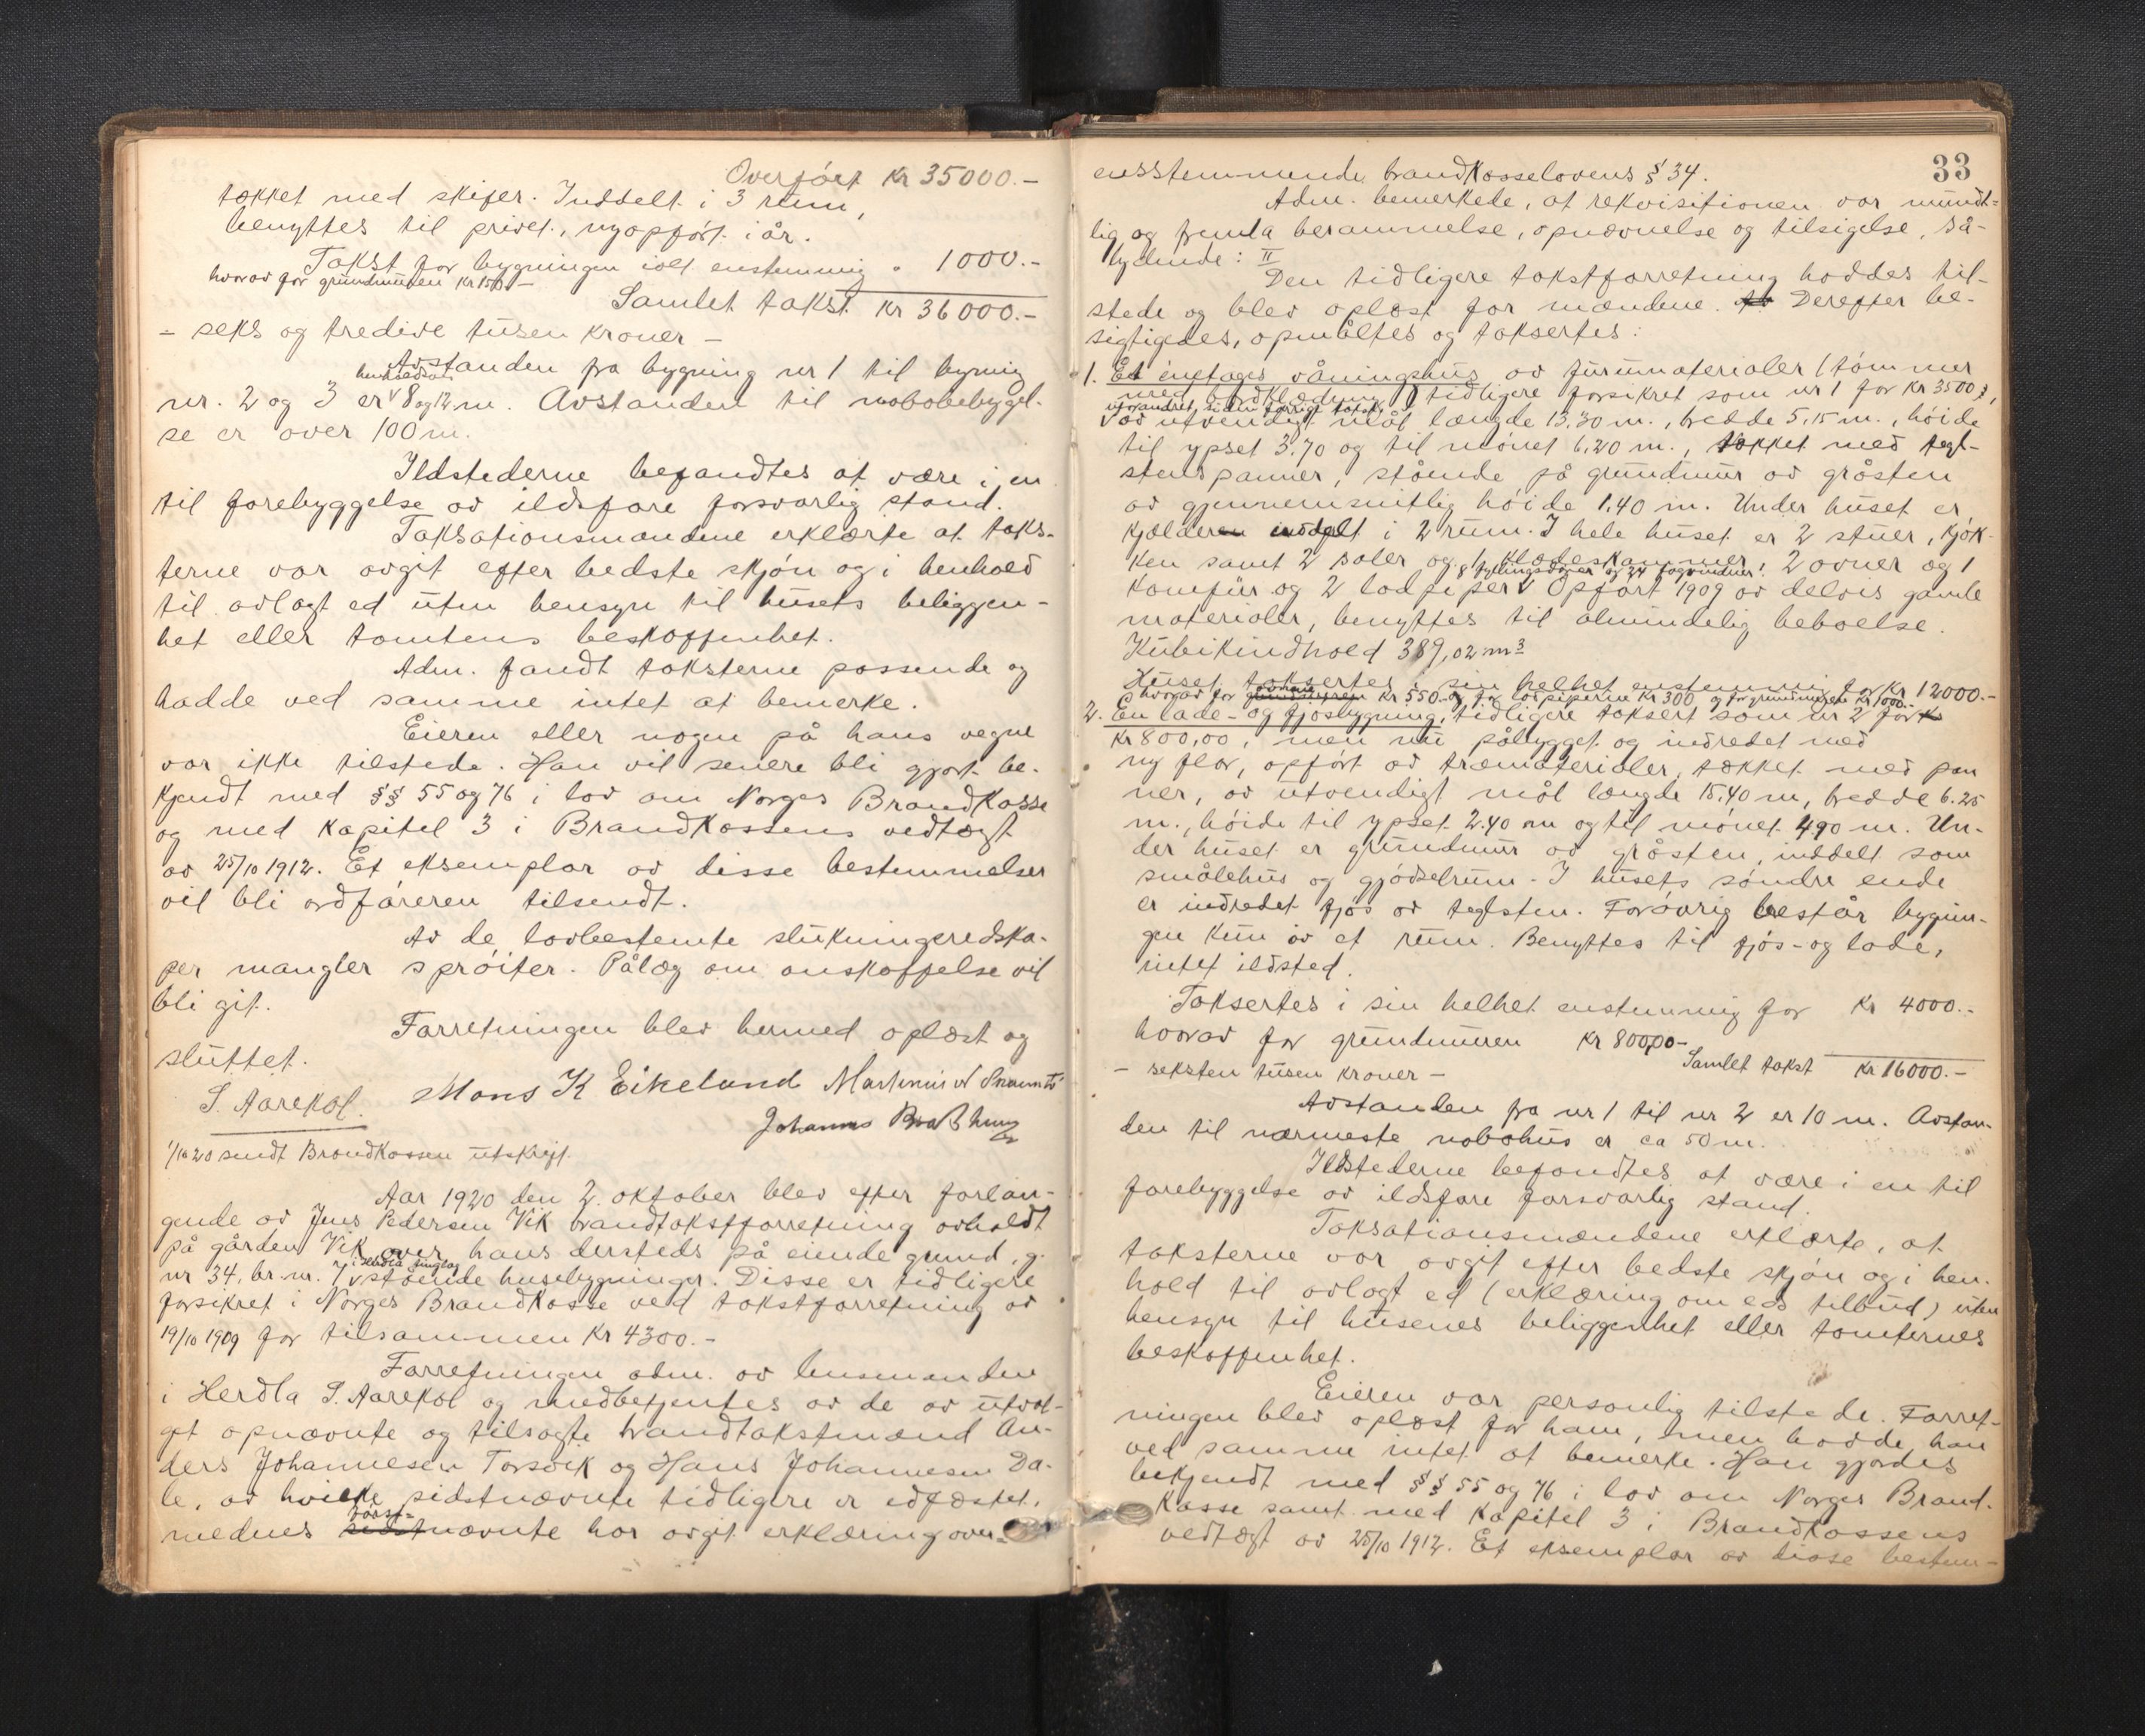 Overført Kr 35000.-
tækket med skifer. Inddelt i 3 rum,
benyttes til privet, nyopført i år.
Takst for bygningen ialt enstemmig " 1000.-
hvorav for grundmuren Kr 150.-
Samlet takst Kr 36000.-
- seks og tredive tusen kroner -
Avstanden fra bygning nr 1 til bygning
henholdsvis
nr. 2 og 3 er 8 og 12 m. Avstanden til nabobebygel-
se er over 100 m.
Ildstederne befandtes at være i en
til forebyggelse av ildsfare forsvarlig stand.
Taksationsmændene erklærte at taks-
terne var avgit efter bedste skjøn og i henhold
til avlagt ed uten hensyn til husets beliggen-
het eller tomtens beskaffenhet.
Adm. fandt taksterne passende og
hadde ved samme intet at bemerke.
Eieren eller nogen på hans vegne
var ikke tilstede. Han vil senere bli gjort be-
kjendt med §§ 55 og 76 i lov om Norges Brandkasse
og med kapitel 3 i Brandkassens vedtægt
av 25/10 1912. Et eksemplar av disse bestemmelser
vil bli ordføreren tilsendt.
Av de lovbestemte slukningsredska-
per mangler sprøiter. Pålæg om anskaffelse vil
bli git.
Forretningen blev hermed oplæst og
sluttet.
S. Aarekol. Mons K Eikeland Martinius
Johannes
1/10 20 sendt Brandkassen utskrift.
Aar 1920 den 2. oktober blev efter forlan-
gende av Jens Pedersen Vik brandtakstforretning avholdt
på gården Vik over hans dersteds på eiende grund, g.
i Herdla tinglag
nr 34, br. nr. 7 stående husebygninger. Disse er tidligere
forsikret i Norges Brandkasse ved takstforretning av
19/10 1909 for tilsammen Kr 4300.-
Forretningen adm. av lensmanden
i Herdla S. Aarekol og medbetjentes av de av utval-
get opnævnte og tilsagte brandtakstmænd An-
ders Johannesen Torsvik og Hans Johannesen Da-
le, av hvilke sidstnævnte tidligere er edfæstet,
først-
medens sidstnævnte har avgit erklæring over-
33
ensstemmende brandkasselovens § 34.
Adm. bemerkede, at rekvisitionen var mundt-
lig og fremla berammelse, opnævnelse og tilsigelse, så-
lydende: II
Den tidligere takstforretning haddes til-
stede og blev oplæst for mændene. Derefter be-
sigtigedes, opmåltes og taksertes:
1. Et enetages våningshus av furumaterialer (tømmer
med bordklædning) tidligere forsikret som nr 1 for Kr 3500,
uforandret siden forrige takst,
av utvendigt mål længde 13,30 m., bredde 5,15 m., høide
til ypset 3.70 og til mønet 6,20 m., tækket med tegl-
stenspanner, stående på grundmur av gråsten
av gjennemsnitlig høide 1.40 m. Under huset er
kjælderen inddelt i 2 rum. I hele huset er 2 stuer, kjøk-
ken samt 2 saler og 1 klædeskammer, 2 ovner og 1
8 fyllingsdører og 24 fagvinduer.
komfur og 2 lodpiper Opført 1909 av delvis gamle
materialer, benyttes til almindelig beboelse.
Kubikindhold 389,02 m3
Huset taksertes i sin helhet enstemmig for Kr 12000.-
hvorav for grundmuren Kr 550.- og for lodpiperne Kr 300 og for grundmuren Kr 1000.-
2. En lade- og fjøsbygning, tidligere taksert som nr 2 for Kr
Kr 800,00, men nu påbygget og indredet med
ny flor, opført av træmaterialer, tækket med pan
ner, av utvendigt mål længde 15,40 m, bredde 6.25
m., høide til ypset 2.40 m og til mønet 4,90 m. Un-
der huset er grundmur av gråsten, inddelt som
smålehus og gjødselrum. I husets søndre ende
er indredet fjøs av teglsten. Forøvrig består bygnin-
gen kun av et rum. Benyttes til fjøs- og lade,
intet ildsted.
Taksertes i sin helhet enstemmig for Kr 4000.-
hvorav for grundmuren Kr 800,00-
Samlet takst Kr 16000.-
- seksten tusen kroner -
Avstanden fra nr 1 til nr 2 er 10 m. Avstan-
den til nærmeste nabohus er ca 50 m.
Ildstederne befandtes at være i en til
forebyggelse av ildsfare forsvarlig stand.
Taksationsmændene erklærte, at
taksterne var avgit efter bedste skjøn og i hen-
hold til avlagt ed (erklæring om eds tilbud) uten
hensyn til husenes beliggenhet eller tomternes
beskaffenhet.
Eieren var personlig tilstede. Forret-
ningen blev oplæst for ham, men hadde han
ved samme intet at bemerke. Han gjordes
bekjendt med §§ 55 og 76 i lov om Norges Brand-
kasse samt med kapitel 3 i Brandkassens
vedtægt av 25/10 1912. Et eksemplar av disse bestem-